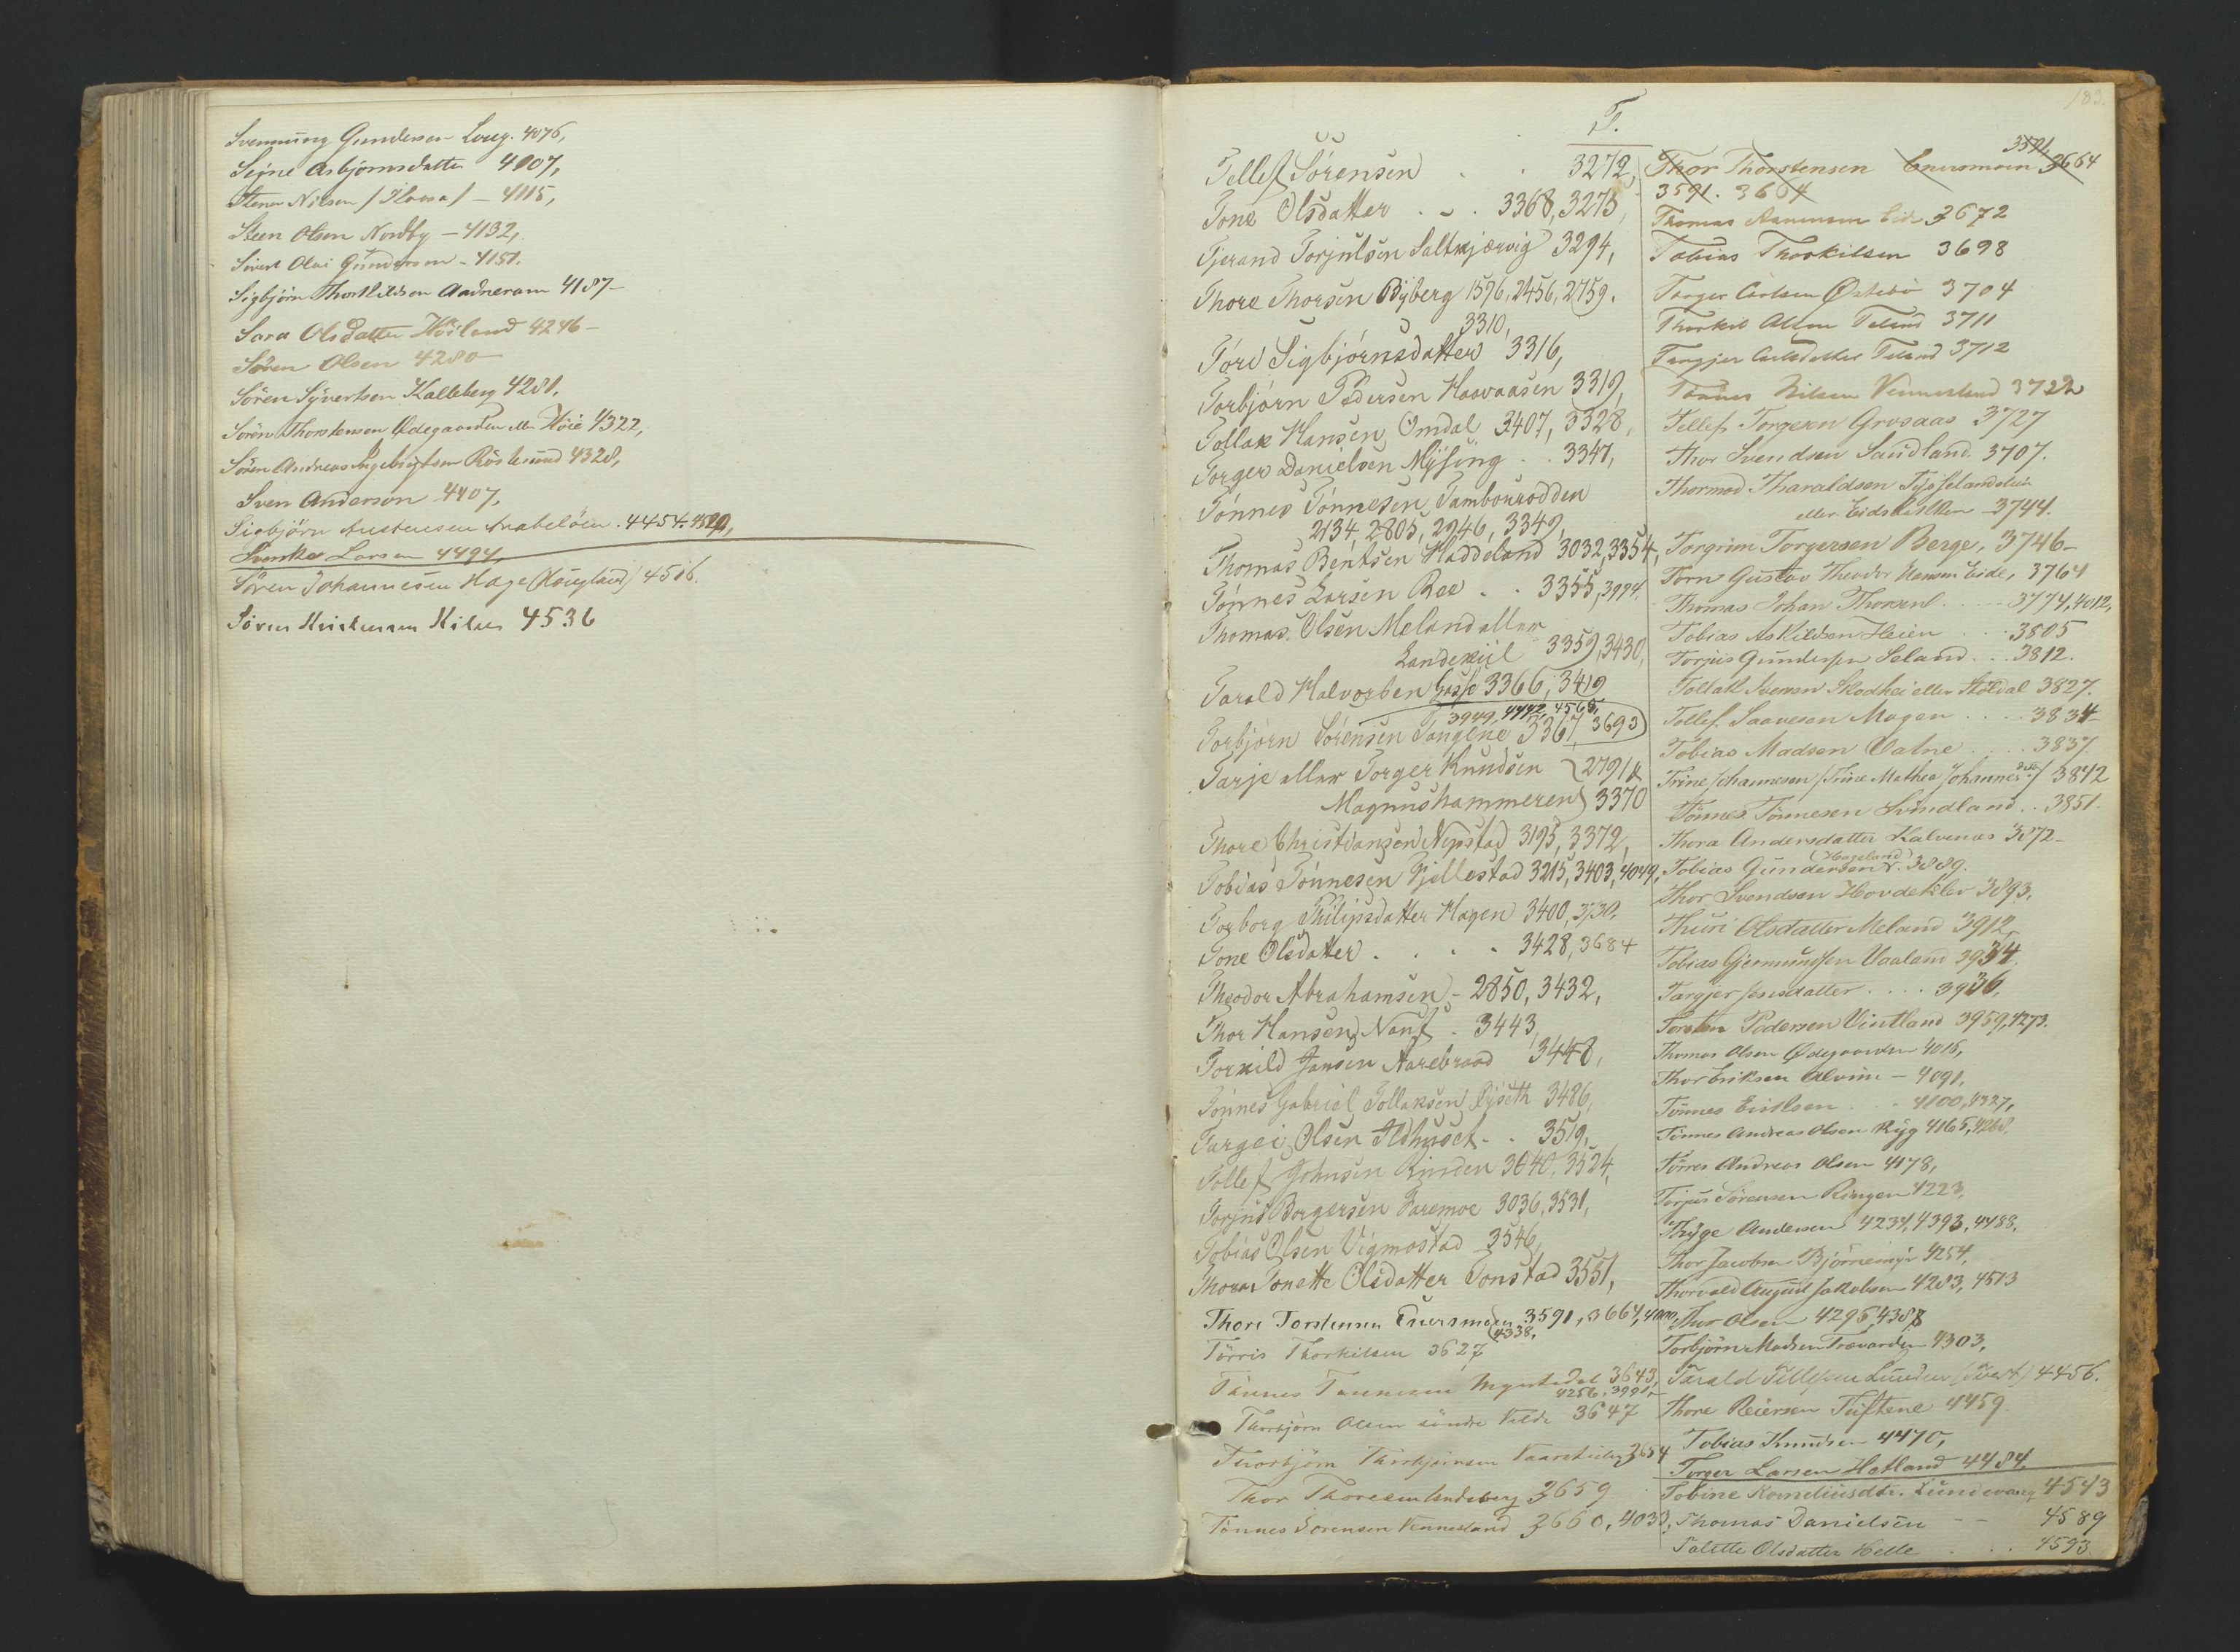 Svennung Gundersen Loug. 4076,
Signe Asbjörnsdatter 4007,
Stener Nilsen / Floosa / — 4115,
Steen Olsen Nordby — 4132,
Sivert Olai Gunderson - 4151.
Sigbjörn Thorkildsen Aadneram 4187 -
Sara Olsdatter Höiland 4246 -
Sören Olsen 4280
Sören Syvertsen Kalleberg 4281,
Sören Thorstensen Ødegaarden elle Höie 4322,
Sören Andreas Ingebrigtsen Röslund 4328,
Sven Anderson 4407,
Sigbjörn Austensen 4454.
Svenke Larsen 4494,
Sören Johannesen Hage (Hougland) 4516.
Sören Kristensen Kilen 4536
183.
T.
Tellef Sörensen . . 3272,
Tone Olsdatter . . . 3368, 3275,
Tjerand Torjulsen Saltkjærvig 3294,
Thore Thorsen Byberg 1596, 2456, 2759.
3310,
Tore Sigbjörnsdatter 3316,
Torbjörn Pedersen Haavaasen 3319,
Tollak Hansen Omdal 3407, 3328,
Torger Danielsen Mysing . . 3347,
Tönnes Tönnesen Tambourodden
2134, 2805, 2946, 3349,
Thomas Bentsen Haddeland 3032, 3354,
Tönnes Larsen Ree . . 3355, 3974.
Thomas Olsen Meland eller
Landekiil 3359, 3430,
Tarald Halvorsen Gaase 3366, 3419
3949, 4442, 4568,
Torbjörn Sörensen Tangene 3367, 3693
Tarje eller Torger Knudsen 2791 &
Magnushammeren 3370
Thore Christiansen Nepstad 3195, 3372,
Tobias Tönnesen Fjellestad 3215, 3403, 4049,
Torborg Philipsdatter Hagen 3400, 3730,
Tone Olsdatter . . . . 3428, 3684
Theodor Abrahamsen - 2850, 3432,
Thor Hansen Nauf . 3443,
Torkild Jansen Aarebraad 3448,
Tönnes Gabriel Tollaksen Ryseth 3486,
Targei Olsen Ildhuset . . 3519,
Tollef Johnsen Rinden 3040, 3524,
Torjus Borgersen Faremoe 3036, 3531,
Tobias Olsen Vigmostad 3546,
Thora Tonette Olsdatter Tonstad 3551,
Thore Torstensen Einersmoen 3591, 3664, 4000,
4338,
Törris Thorkilsen 3627
Tönnes Tönnesen 3643,
4256, 3991,
Thorbjörn Olsen söndre Velde 3647
Thorbjörn Thorbjörnsen 3654
Thor Thoresen Underberg 3659
Tönnes Sörensen Vennesland 3660, 4033,
3591,
Thor Thorstensen Enersmoen 3664
3591. 3664
Thomas Aanensen Eide 3672
Tobias Thorkilsen 3698
Torger Carlsen Østebö 3704
Thorkil Olsen Teland 3711
Targjer Carlsdatter Teland 3712
Tönnes Nilsen Vennesland 3722
Tellef Torgersen Grosaas 3727
Thor Svendsen Sandland 3707.
Thormod Tharaldsen
eller Eidskilken 3744.
Torgrim Torgersen Berge, 3746 -
Torn Gustav Theodor Hansen Eide, 3764
Thomas Johan Thorsen . . . 3774, 4012,
Tobias Askildsen Heien . . . 3805
Torjus Gundersen Seland . . . 3812.
Tollak Svensen Skodhei eller Stöldal 3827.
Tollef Saavesen Mogen . . . . 3834
Tobias Madsen Valne . . . . 3837.
Trine Johannesen / Trine Mathea Johannesdatter / 3842
Tönnes Tönnesen Svindland . . 3851.
Thora Andersdatter Kalvenes 3872 -
(Hageland)
Tobias Gundersen . 3889.
Thor Svendsen Hovdeklev 3893,
Thuri Olsdatter Meland 3912,
Tobias Gjermundsen Vaaland 3934.
Targjer Jensdatter . . . . 3936,
Torsten Pedersen Vintland 3959, 4273.
Thomas Olsen Ødegaarden 4015,
Thor Eriksen Alvim — 4091,
Tönnes Eriksen . . 4100, 4327,
Tönnes Andreas Olsen Ryg 4165, 4268
Törres Andreas Olsen 4178,
Torjus Sörensen Ringen 4223,
Thyge Andersen 4234, 4393, 4488.
Thor Jacobsen Björnemyr 4254,
Thorvald August Jakobsen 4283, 4513
Thor Olsen 4295, 4388
Torbjörn Madsen Trævarden 4303,
Tarald Tellefsen Lunden (Tveit) 4456.
Thore Reiersen Tuftene 4459.
Tobias Knudsen 4470,
Torger Larsen Hatland 4484,
Tobine Korneliusdtr. Lunevang 4543
Thomas Danielsen — — 4589
Talette Olsdatter Helle . . . 4593.